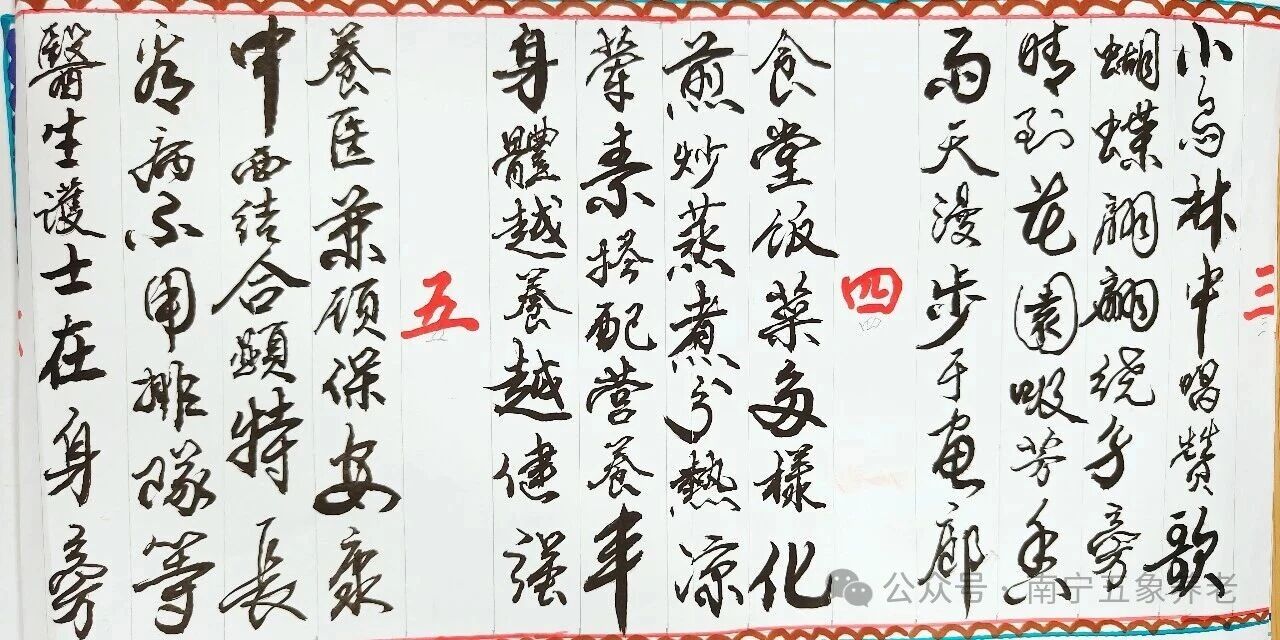 三
小鳥林中唱贊歌
蝴蝶翩翩繞身旁
晴到花園吸芳香
雨天漫步于画廊
四
食堂飯菜多樣化
煎炒蒸煮分熱涼
葷素搭配營養丰
身體越養越健强
五
養医兼顾保安康
中西结合顯特長
看病不用排隊等
醫生護士在身旁
公众号·南宁五象养老